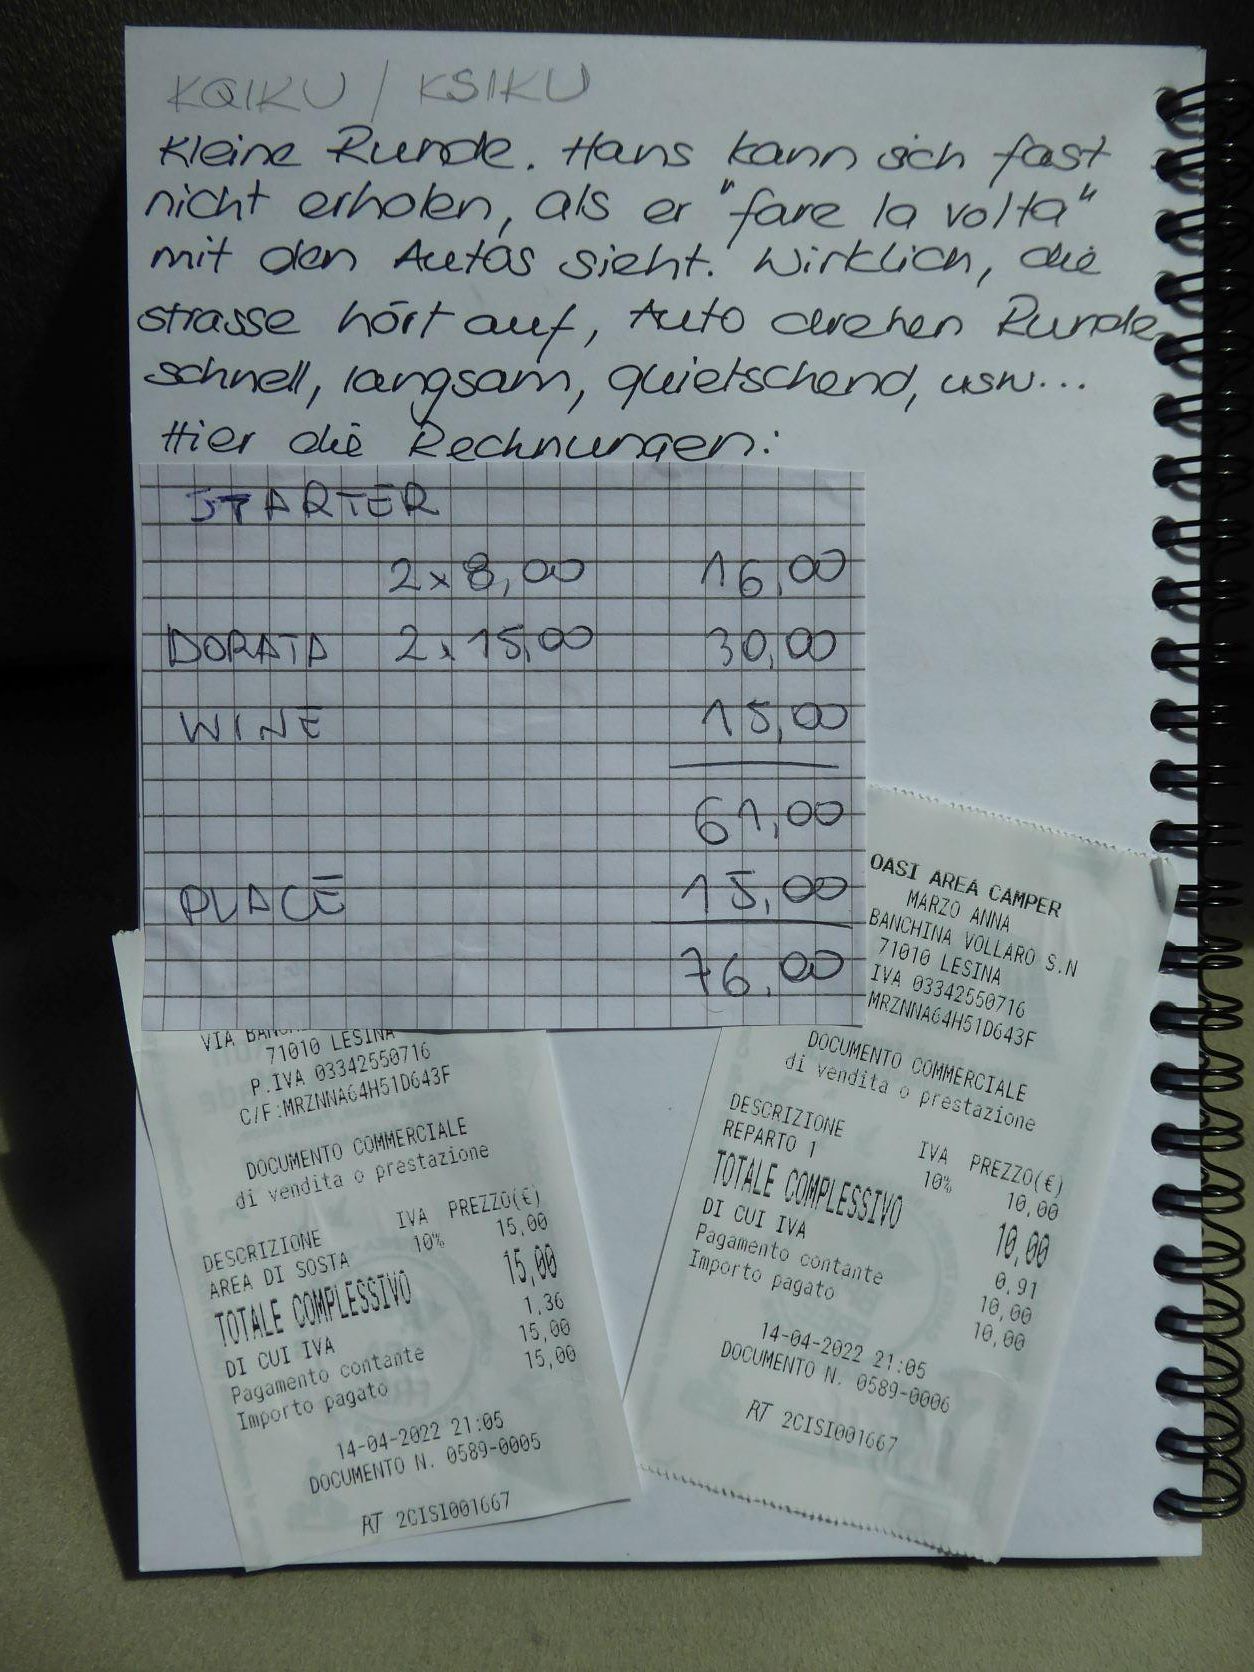 KQIKU / KSIKU
Kleine Runde. Hans kann sich fast
nicht erholen, als er "fare la volta"
mit den Autos sieht. Wirklich, die
strasse hört auf, Auto drehen Runde
schnell, langsam, quietschend, usw...
Hier die Rechnungen:
STARTER
2 x 8,00 16,00
DORATA 2 x 15,00 30,00
WINE 15,00
61,00
PLACE 15,00
76,00
VIA
71010 LESINA
P.IVA 03342550716
C/F:MRZNNA64H51D643F
DOCUMENTO COMMERCIALE
di vendita o prestazione
DESCRIZIONE IVA PREZZO(€)
AREA DI SOSTA 10% 15,00
TOTALE COMPLESSIVO 15,00
DI CUI IVA 1,36
Pagamento contante 15,00
Importo pagato 15,00
14-04-2022 21:05
DOCUMENTO N. 0589-0005
RT 2CISI001667
OASI AREA CAMPER
MARZO ANNA
BANCHINA VOLLARO S.N
71010 LESINA
IVA 03342550716
MRZNNA64H51D643F
DOCUMENTO COMMERCIALE
di vendita o prestazione
DESCRIZIONE IVA PREZZO(€)
REPARTO 1 10% 10,00
TOTALE COMPLESSIVO 10,00
DI CUI IVA 0,91
Pagamento contante 10,00
Importo pagato 10,00
14-04-2022 21:05
DOCUMENTO N. 0589-0006
RT 2CISI001667